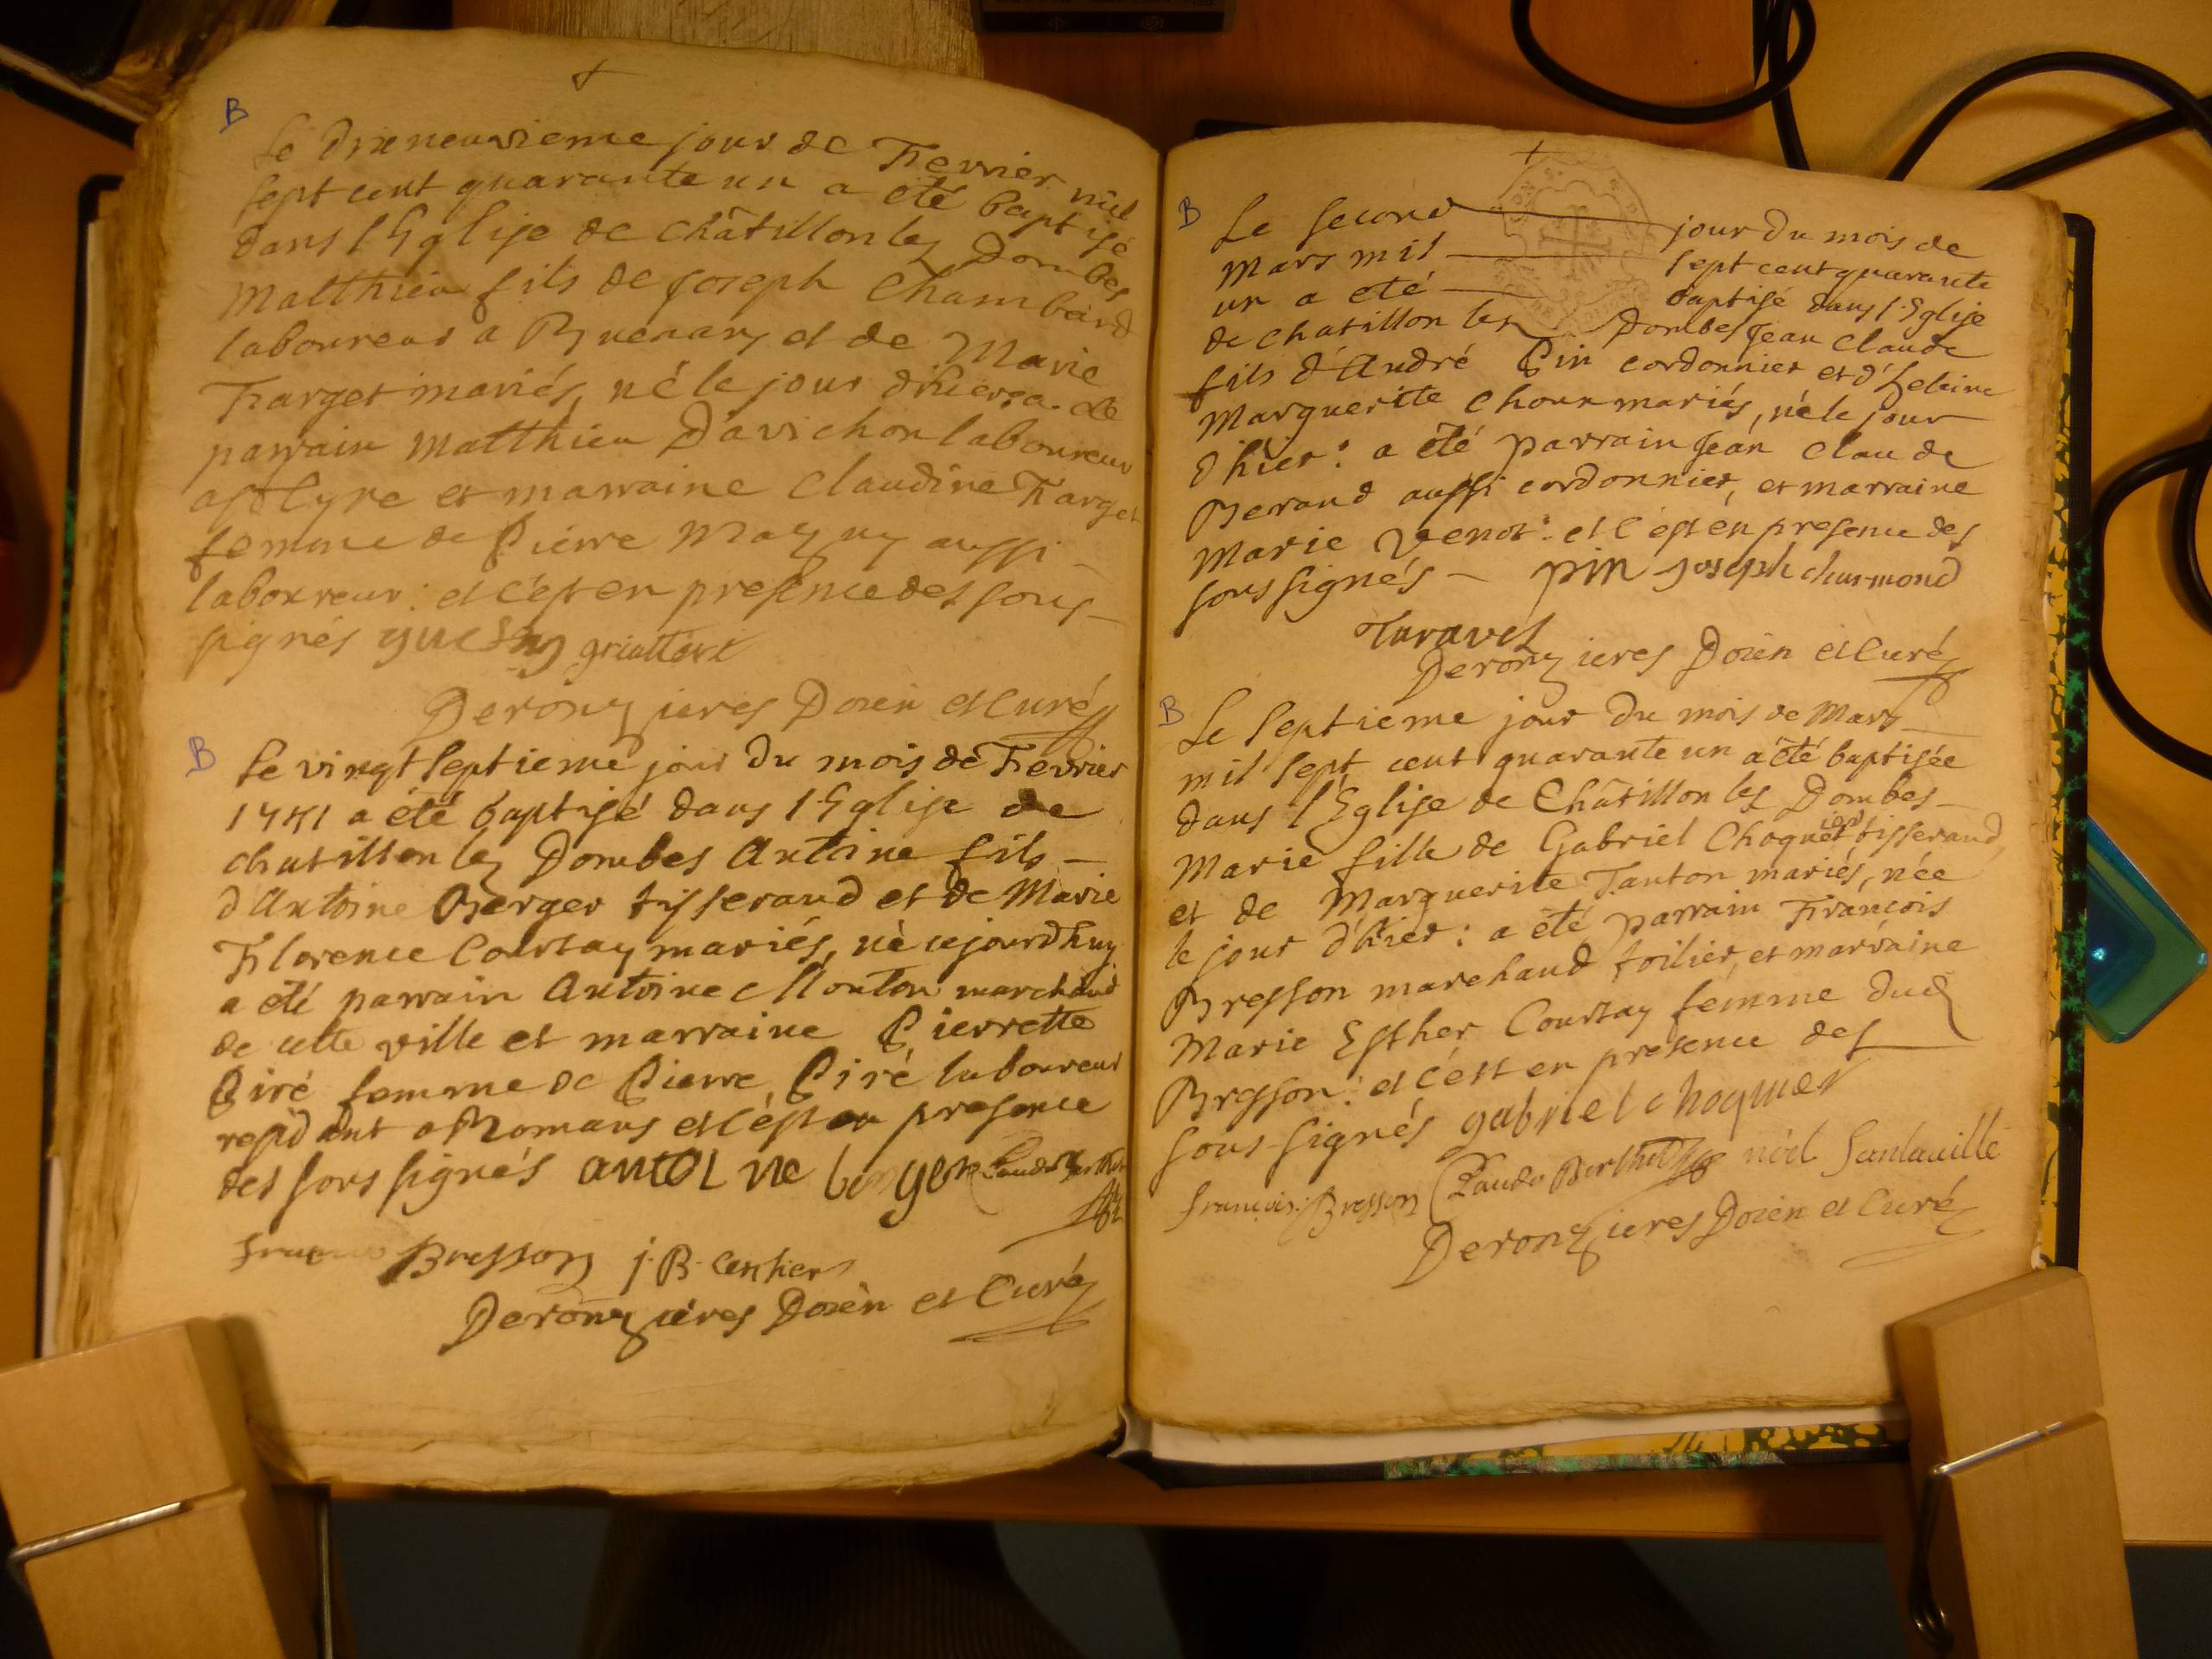 B
Le dixneuvieme jour de Fevrier mil
sept cent quarante un a eté baptisé
dans l'Eglise de Châtillon les Dombes
Matthieu fils de Joseph Chambard
laboureur a Buenans et de Marie
Farget mariés, né le jour d'hier: a
parrain Matthieu Davichon laboureur
et marraine Claudine Farget
femme de Pierre Mazuy aussi
laboureur: et c'est en presence des sous
signés
Deronzieres Doïen et Curé
B
Le vingt septieme jour du mois de Fevrier
1741 a été baptisé dans l'Eglise de
chatillon les Dombes Antoine fils
d'Antoine Berger tisserand et de Marie
Florence Courtay mariés, né cejourdhuy
a été parrain Antoine Monton marchand
de cette ville et marraine Pierrette
Piré femme de Pierre Piré laboureur
residant a Romans et c'est en presence
des sous signés antoine
Bresson j.B.
Deronzieres Doïen et Curé
B
Le second jour du mois de
Mars mil sept cent quarante
un a eté baptisé dans l'Eglise
de chatillon les Dombes Jean Claude
fils d'André Pin cordonnier et d'
Marguerite Choux mariés, né le jour
d'hier: a été parrain Jean Claude
Beraud aussi cordonnier, et marraine
Marie Venot: et c'est en presence des
sous signés pin joseph
Taravel
Deronzieres Doïen et Curé
B
Le septieme jour du mois de Mars
mil sept cent quarante un a été baptisée
dans l'Eglise de Châtillon les Dombes
Marie fille de Gabriel Choquet tisserand
et de Marguerite Tanton mariés, née
le jour d'hier: a été parrain François
Bresson marchand toilier, et marraine
Marie Esther Courtay femme dud
Bresson: et c'est en presence des
sous signés gabriel choquier
françois Bresson Claude noël
Deronzieres Doïen et Curé